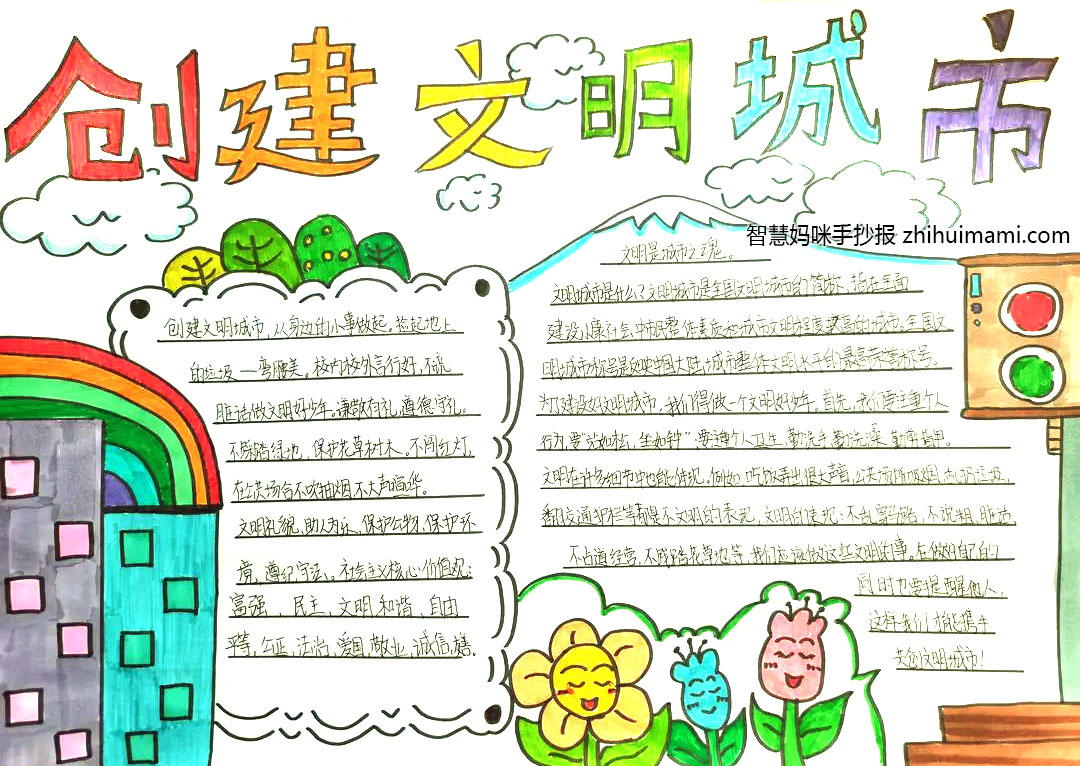 创建文明城市
智慧妈咪手抄报 zhihuimami.com
创建文明城市，从身边的小事做起。捡起地上
的垃圾一弯腰美。校内校外言行好，不说
脏话做文明好少年。谦敬有礼，遵德守礼。
不踩踏绿地，保护花草树木。不闯红灯，
在公共场合不吸抽烟不大声喧华。
文明礼貌，助人为乐，保护公物，保护环
境，遵纪守法。社会主义核心价值观：
富强、民主、文明和谐、自由
平等，公正，法治，爱国，敬业，诚信，
文明是城市之魂。
文明城市是什么？文明城市是全国文明城市的简称，指在全面
建设小康社会，中市民整体素质和城市文明程度较高的城市。全国文
明城市称号是反映中国大陆城市整体文明水平的最高荣誉称号。
为了建设好文明城市，我们得做一个文明好少年。首先，我们要注重个人
行为，要“站如松，坐如钟”要注重个人卫生，勤洗手勤洗澡，勤剪指甲。
文明在许多细节中也能体现。例如吃饭弄出很大声音，公共场所吸烟，乱扔垃圾，
翻越交通护栏等都是不文明的表现，文明的表现：不乱穿马路，不说粗，脏话
不占道经营，不踩踏花草地等，我们应该做这些文明的事。在做好自己的
同时也要提醒他人，
这样我们才能携手
共创文明城市！